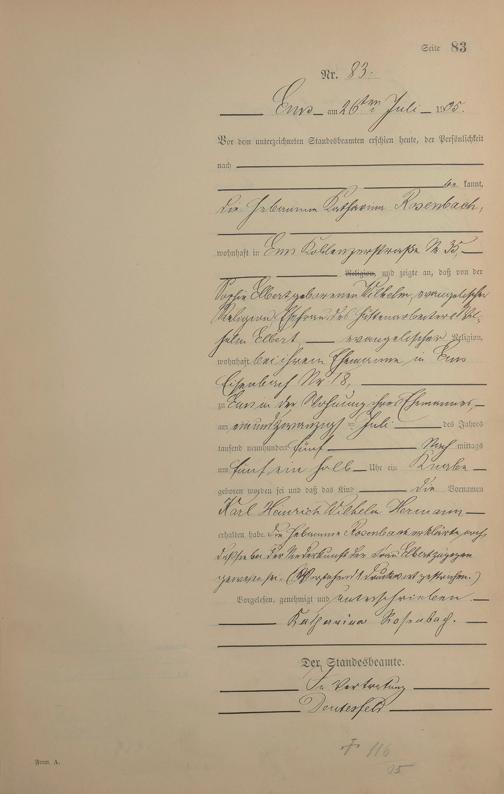 Seite 83
Nr. 83.
Ems am 26ten Juli 1905.
Vor dem unterzeichneten Standesbeamten erschien heute, der Persönlichkeit
nach
be kannt,
die Hebamme Katharina Rosenbach,
wohnhaft in Ems Koblenzerstraße Nr 35,
Religion, und zeigte an, daß von der
Sophie Elbert geborenen Wilhelm, evangelischer
Religion, Ehefrau des Hüttenarbeiters Wil-
helm Elbert, evangelischer Religion,
wohnhaft bei ihrem Ehemanne in Ems
Eisenbach Nr 18,
zu Ems in der Wohnung ihres Ehemannes,
am einundzwanzigsten Juli des Jahres
tausend neunhundert fünf Nach mittags
um fünf ein halb Uhr ein Knabe
geboren worden sei und daß das Kind die Vornamen
Karl Heinrich Wilhelm Hermann
erhalten habe. Die Hebamme Rosenbach erklärte, auch,
daß sie bei der Niederkunft der Frau Elbert zugegen
gewesen sei. (Vorstehend 1 Druckwort gestrichen.)
Vorgelesen, genehmigt und unterschrieben.
Katharina Rosenbach.
Der Standesbeamte.
In Vertretung
116
Form. A.